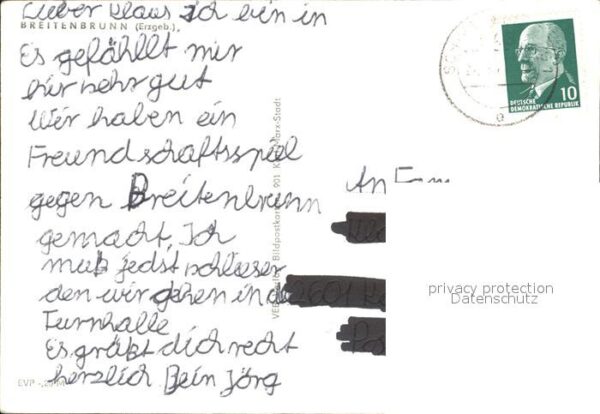 Lieber Klaus Ich bin in
BREITENBRUNN (Erzgeb.)
Es gefählt mir
hir sehr gut
Wir haben ein
Freundschaftsspiel
gegen Breitenbrunn
gemacht. Ich
muß jedst schlieser
den wir gehen in die
Turnhalle
Es grüßt dich recht
herzlich Dein Jörg
EVP
VEB Bildpostkarten 901 Karl-Marx-Stadt
10
DEUTSCHE
DEMOKRATISCHE REPUBLIK
An
2601
privacy protection
Datenschutz